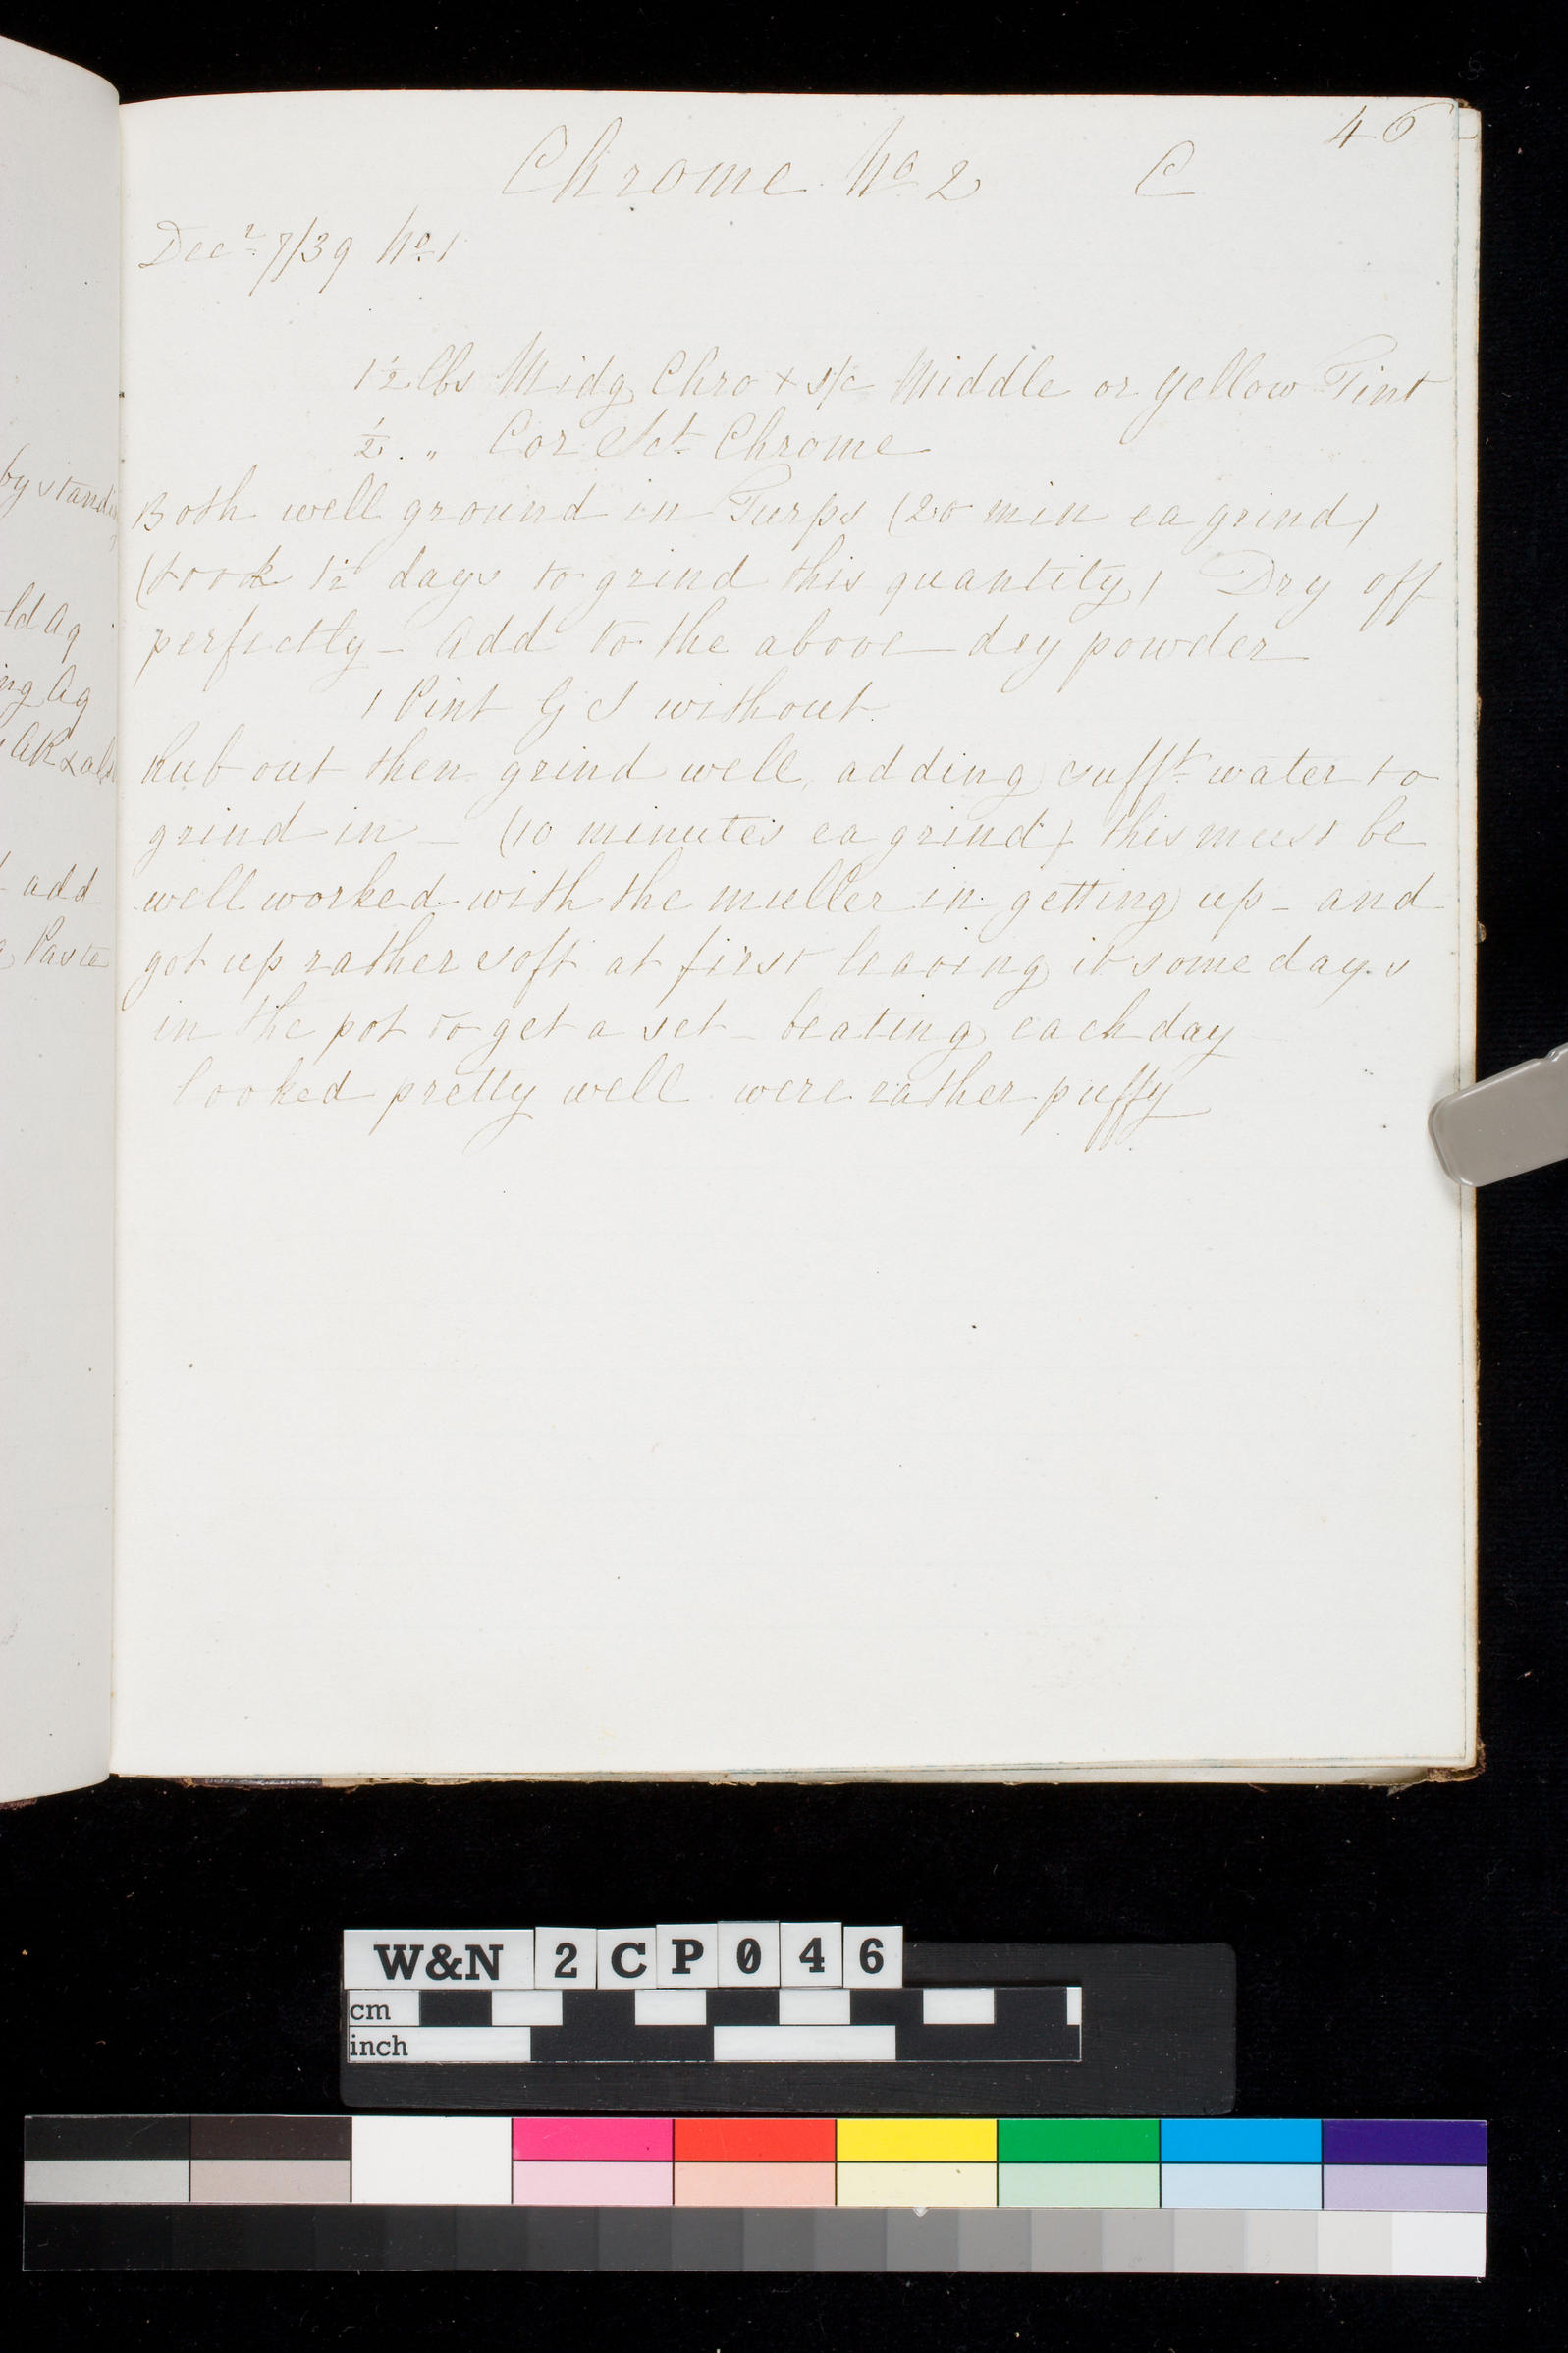 46
Chrome No 2 C
Decr 7/39 No 1
1½ lbs Midg Chro + s/c Middle or Yellow Tint
½ . " Cor Sct Chrome
Both well ground in Turps (20 min ea grind)
(took 1½ days to grind this quantity) Dry off
perfectly - Add to the above dry powder
1 Pint G S without
Rub out then grind well, adding sufft water to
grind in - (10 minutes ea grind) this must be
well worked with the muller in getting up - and
got up rather soft at first leaving it some days
in the pot to get a set - beating each day
looked pretty well were rather puffy
by standin
ld Aq
ing Aq
AR & al
add
Paste
W&N 2 C P 0 4 6
cm
inch